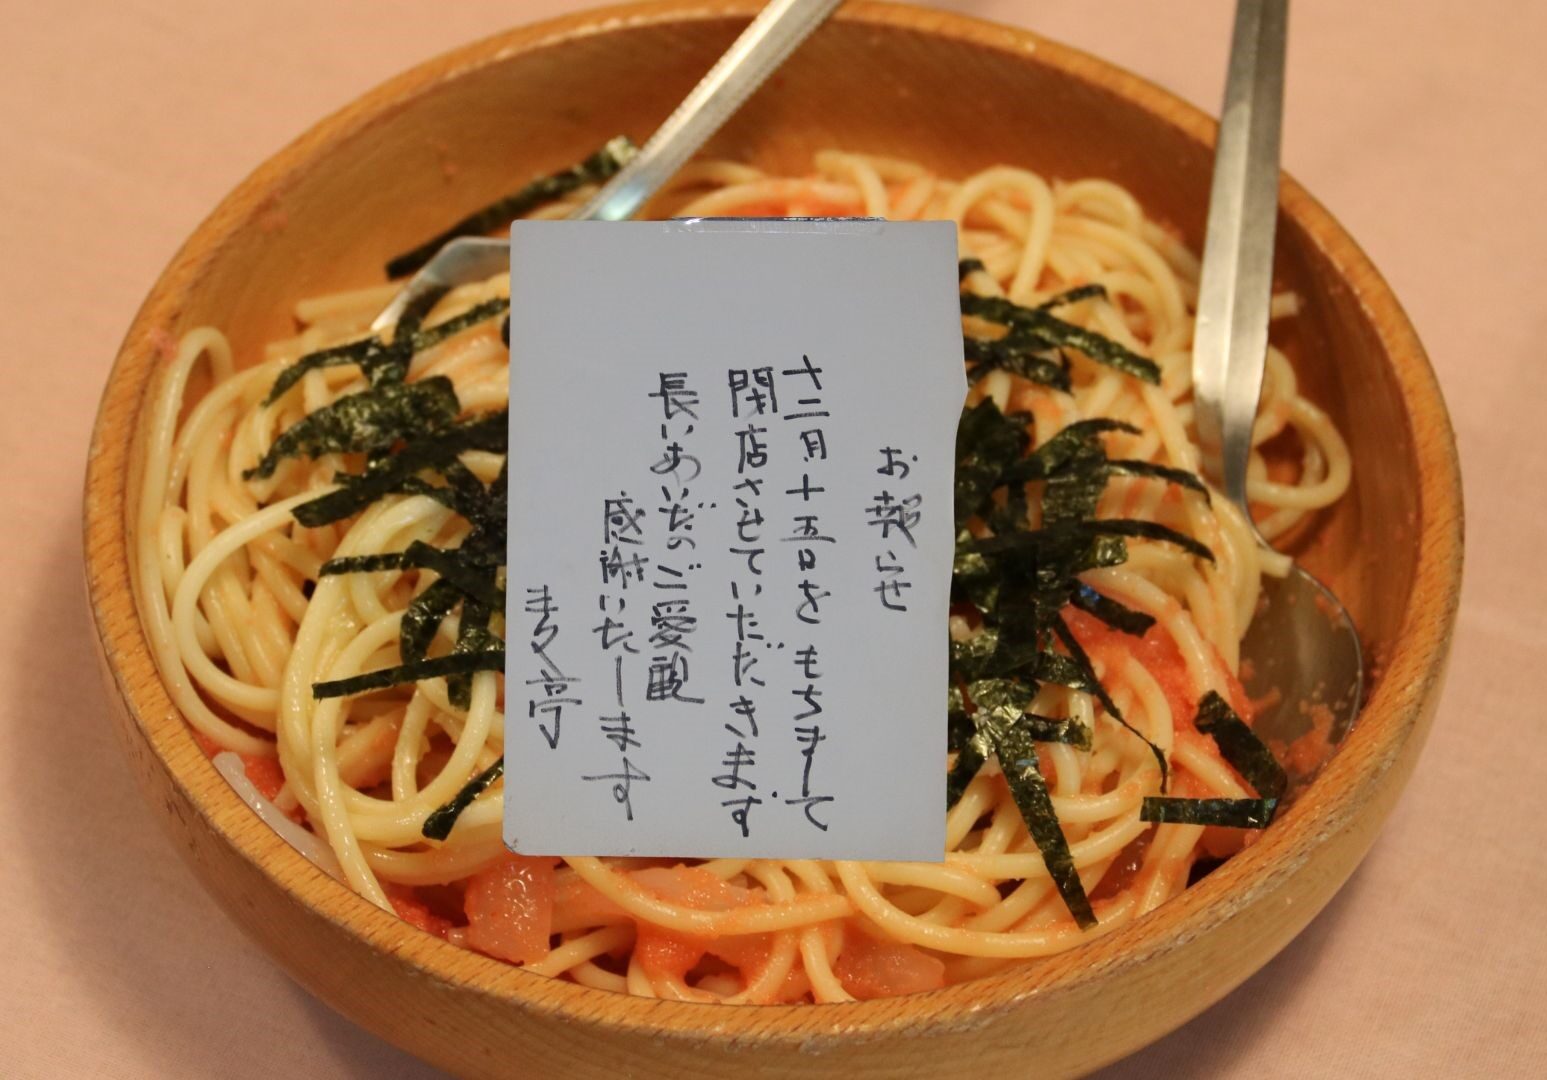 お報らせ
十二月十五日をもちまして
閉店させていただきます
長いあいだのご愛顧
感謝いたします
まく亭